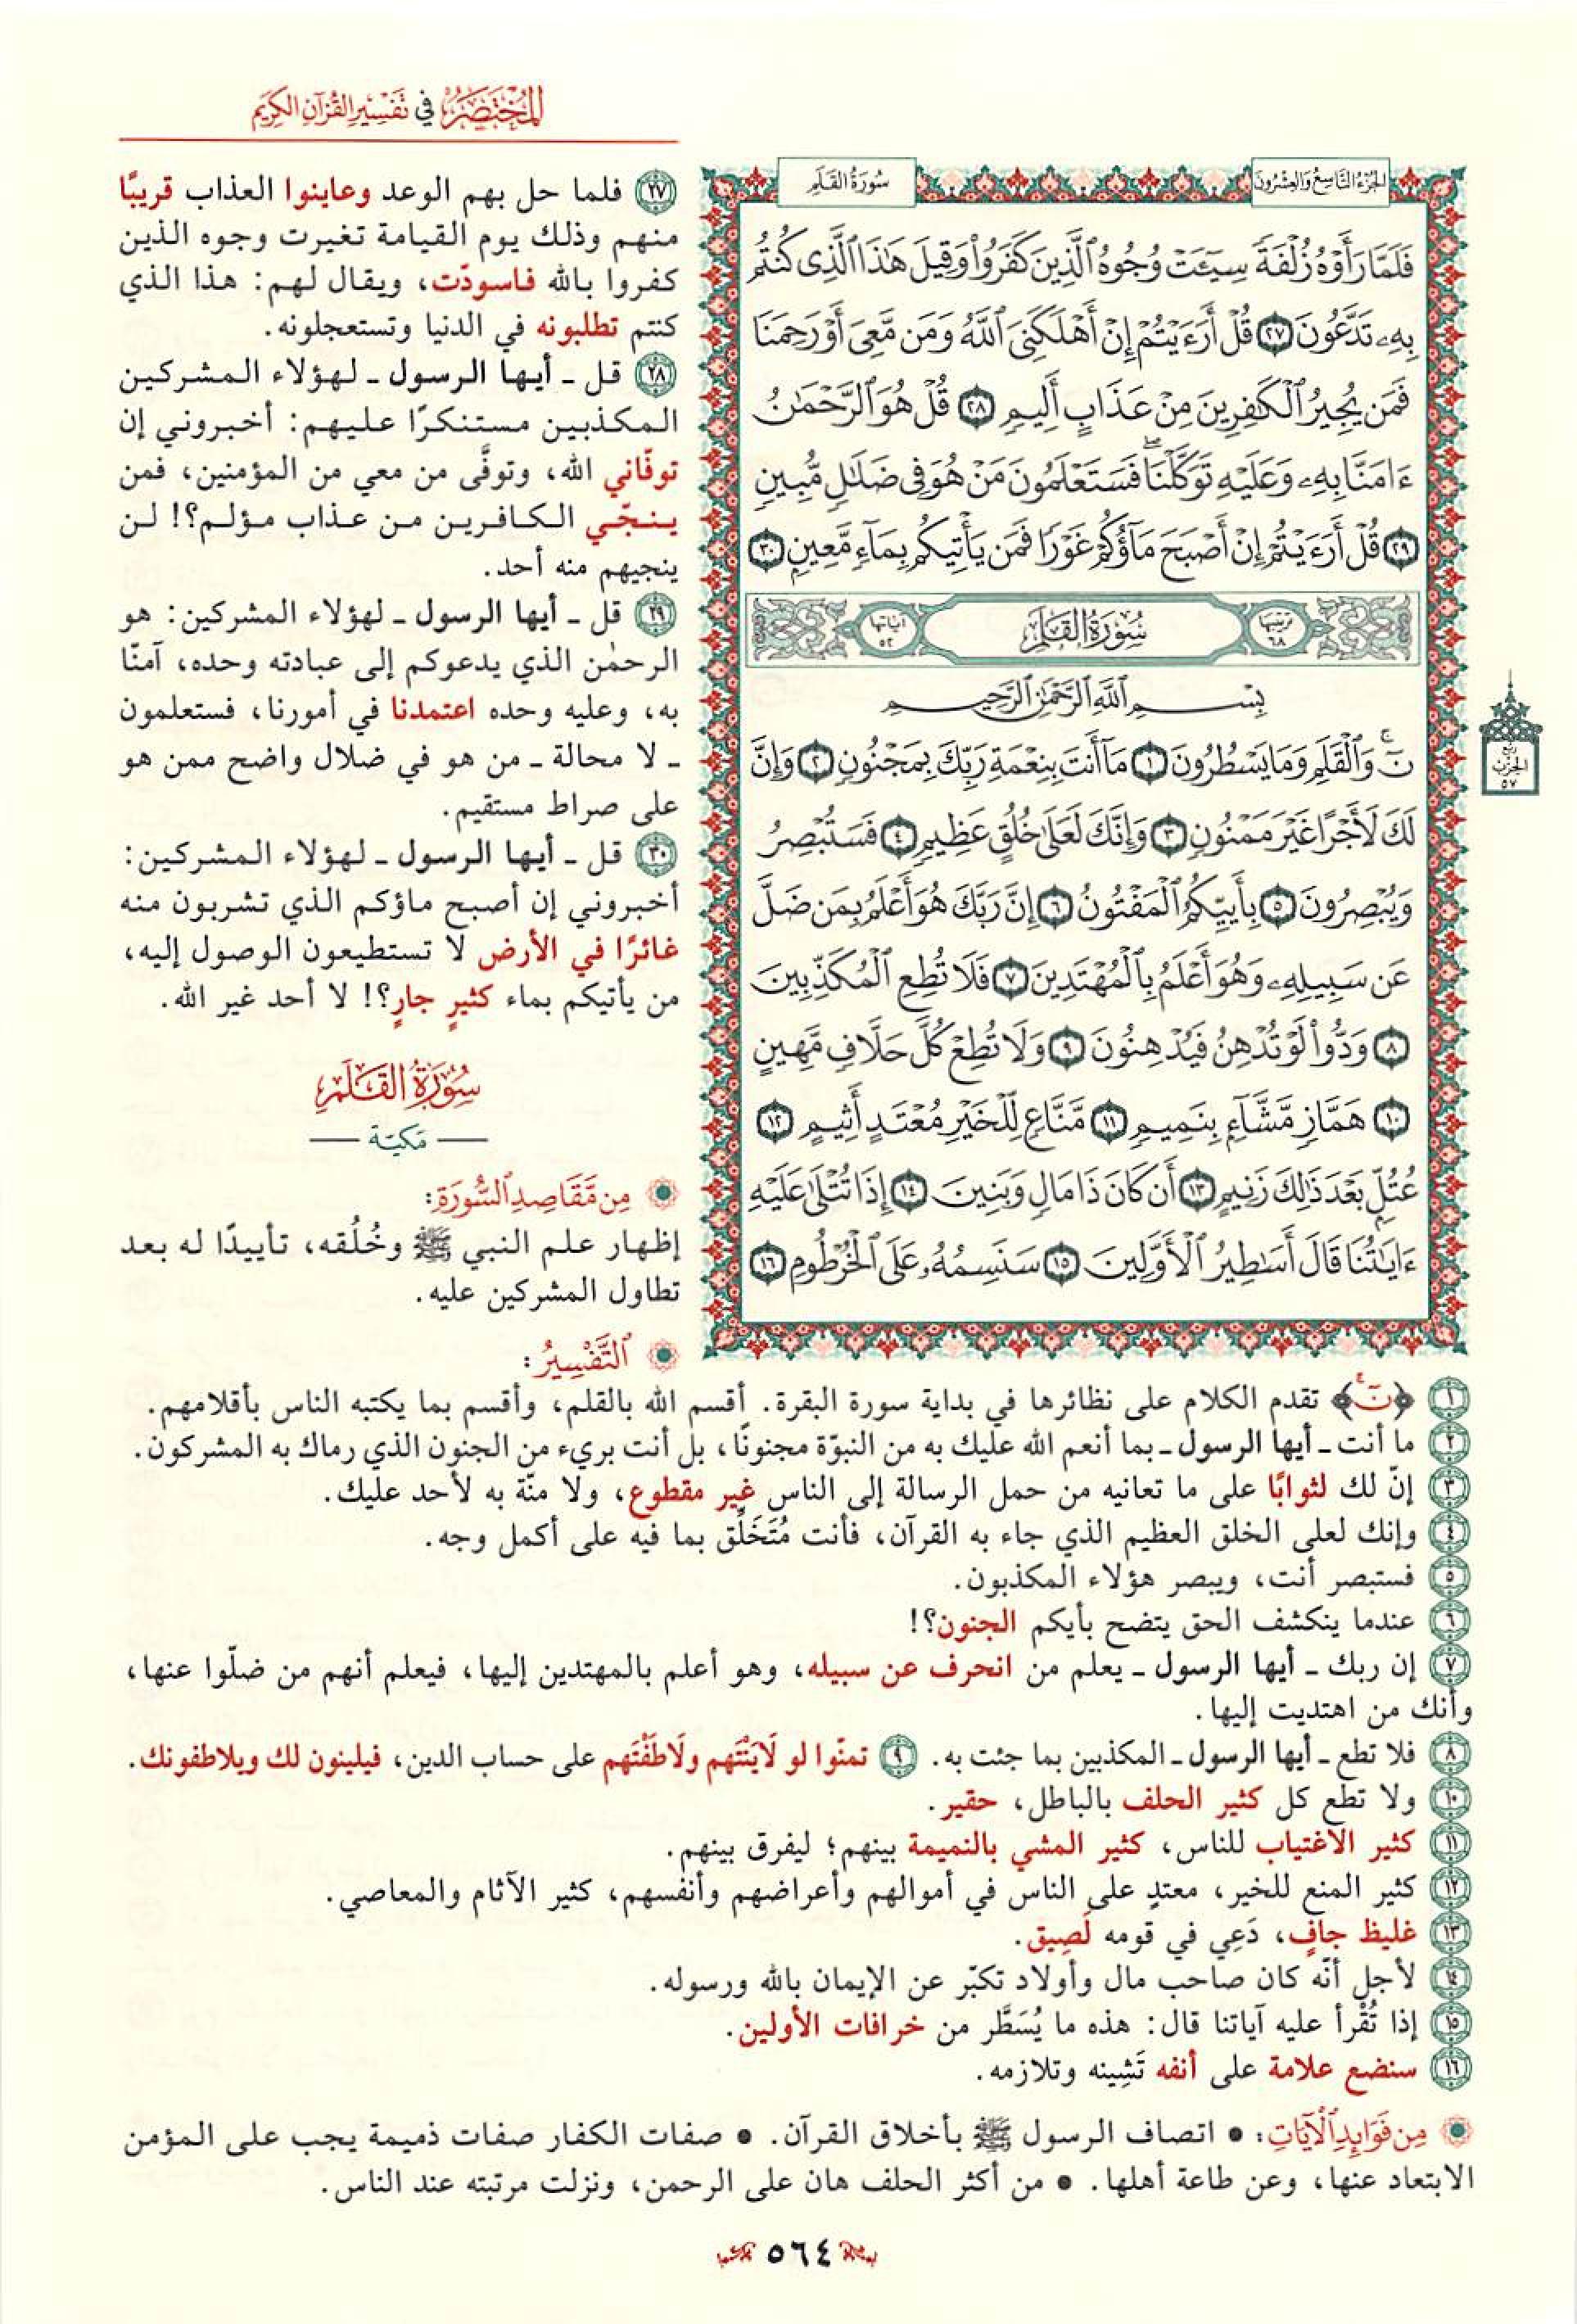 المختصر في تفسير القرآن الكريم
الجزء التاسع والعشرون
سورة القلم
فَلَمَّا رَأَوْهُ زُلْفَةً سِيٓـَٔتْ وُجُوهُ ٱلَّذِينَ كَفَرُوا۟ وَقِيلَ هَٰذَا ٱلَّذِى كُنتُم
بِهِۦ تَدَّعُونَ ٢٧ قُلْ أَرَءَيْتُمْ إِنْ أَهْلَكَنِىَ ٱللَّهُ وَمَن مَّعِىَ أَوْ رَحِمَنَا
فَمَن يُجِيرُ ٱلْكَٰفِرِينَ مِنْ عَذَابٍ أَلِيمٍ ٢٨ قُلْ هُوَ ٱلرَّحْمَٰنُ
ءَامَنَّا بِهِۦ وَعَلَيْهِ تَوَكَّلْنَا ۖ فَسَتَعْلَمُونَ مَنْ هُوَ فِى ضَلَٰلٍ مُّبِينٍ
٢٩ قُلْ أَرَءَيْتُمْ إِنْ أَصْبَحَ مَآؤُكُمْ غَوْرًا فَمَن يَأْتِيكُم بِمَآءٍ مَّعِينٍۭ ٣٠
ترتيبها ٦٨
سورة القلم
آياتها ٥٢
بِسْمِ ٱللَّهِ ٱلرَّحْمَٰنِ ٱلرَّحِيمِ
نٓ ۚ وَٱلْقَلَمِ وَمَا يَسْطُرُونَ ١ مَآ أَنتَ بِنِعْمَةِ رَبِّكَ بِمَجْنُونٍ ٢ وَإِنَّ
لَكَ لَأَجْرًا غَيْرَ مَمْنُونٍ ٣ وَإِنَّكَ لَعَلَىٰ خُلُقٍ عَظِيمٍ ٤ فَسَتُبْصِرُ
وَيُبْصِرُونَ ٥ بِأَييِّكُمُ ٱلْمَفْتُونُ ٦ إِنَّ رَبَّكَ هُوَ أَعْلَمُ بِمَن ضَلَّ
عَن سَبِيلِهِۦ وَهُوَ أَعْلَمُ بِٱلْمُهْتَدِينَ ٧ فَلَا تُطِعِ ٱلْمُكَذِّبِينَ
٨ وَدُّوا۟ لَوْ تُدْهِنُ فَيُدْهِنُونَ ٩ وَلَا تُطِعْ كُلَّ حَلَّافٍ مَّهِينٍ
١٠ هَمَّازٍ مَّشَّآءٍۭ بِنَمِيمٍ ١١ مَّنَّاعٍ لِّلْخَيْرِ مُعْتَدٍ أَثِيمٍ ١٢
عُتُلٍّۭ بَعْدَ ذَٰلِكَ زَنِيمٍ ١٣ أَن كَانَ ذَا مَالٍ وَبَنِينَ ١٤ إِذَا تُتْلَىٰ عَلَيْهِ
ءَايَٰتُنَا قَالَ أَسَٰطِيرُ ٱلْأَوَّلِينَ ١٥ سَنَسِمُهُۥ عَلَى ٱلْخُرْطُومِ ١٦
ربع
الحزب
٥٧
٢٧ فلما حل بهم الوعد وعاينوا العذاب قريبًا
منهم وذلك يوم القيامة تغيرت وجوه الذين
كفروا بالله فاسودّت، ويقال لهم: هذا الذي
كنتم تطلبونه في الدنيا وتستعجلونه.
٢٨ قل ـ أيها الرسول ـ لهؤلاء المشركين
المكذبين مستنكرًا عليهم: أخبروني إن
توفّاني الله، وتوفَّى من معي من المؤمنين، فمن
ينجّي الكافرين من عذاب مؤلم؟! لن
ينجيهم منه أحد.
٢٩ قل ـ أيها الرسول ـ لهؤلاء المشركين: هو
الرحمٰن الذي يدعوكم إلى عبادته وحده، آمنّا
به، وعليه وحده اعتمدنا في أمورنا، فستعلمون
ـ لا محالة ـ من هو في ضلال واضح ممن هو
على صراط مستقيم.
٣٠ قل ـ أيها الرسول ـ لهؤلاء المشركين:
أخبروني إن أصبح ماؤكم الذي تشربون منه
غائرًا في الأرض لا تستطيعون الوصول إليه،
من يأتيكم بماء كثيرٍ جارٍ؟! لا أحد غير الله.
سورة القلم
مكية
من مقاصد السورة:
إظهار علم النبي ﷺ وخُلُقه، تأييدًا له بعد
تطاول المشركين عليه.
التفسير:
١ ﴿نٓ ۚ﴾ تقدم الكلام على نظائرها في بداية سورة البقرة. أقسم الله بالقلم، وأقسم بما يكتبه الناس بأقلامهم.
٢ ما أنت ـ أيها الرسول ـ بما أنعم الله عليك به من النبوّة مجنونًا، بل أنت بريء من الجنون الذي رماك به المشركون.
٣ إنّ لك لثوابًا على ما تعانيه من حمل الرسالة إلى الناس غير مقطوع، ولا منّة به لأحد عليك.
٤ وإنك لعلى الخلق العظيم الذي جاء به القرآن، فأنت مُتَخَلِّق بما فيه على أكمل وجه.
٥ فستبصر أنت، ويبصر هؤلاء المكذبون.
٦ عندما ينكشف الحق يتضح بأيكم الجنون؟!
٧ إن ربك ـ أيها الرسول ـ يعلم من انحرف عن سبيله، وهو أعلم بالمهتدين إليها، فيعلم أنهم من ضلّوا عنها،
وأنك من اهتديت إليها.
٨ فلا تطع ـ أيها الرسول ـ المكذبين بما جئت به. ٩ تمنّوا لو لَايَنْتَهم ولَاطَفْتَهم على حساب الدين، فيلينون لك ويلاطفونك.
١٠ ولا تطع كل كثير الحلف بالباطل، حقير.
١١ كثير الاغتياب للناس، كثير المشي بالنميمة بينهم؛ ليفرق بينهم.
١٢ كثير المنع للخير، معتدٍ على الناس في أموالهم وأعراضهم وأنفسهم، كثير الآثام والمعاصي.
١٣ غليظ جافٍ، دَعِي في قومه لَصِيق.
١٤ لأجل أنّه كان صاحب مال وأولاد تكبّر عن الإيمان بالله ورسوله.
١٥ إذا تُقْرأ عليه آياتنا قال: هذه ما يُسَطَّر من خرافات الأولين.
١٦ سنضع علامة على أنفه تَشِينه وتلازمه.
من فوائد الآيات: • اتصاف الرسول ﷺ بأخلاق القرآن. • صفات الكفار صفات ذميمة يجب على المؤمن
الابتعاد عنها، وعن طاعة أهلها. • من أكثر الحلف هان على الرحمن، ونزلت مرتبته عند الناس.
٥٦٤